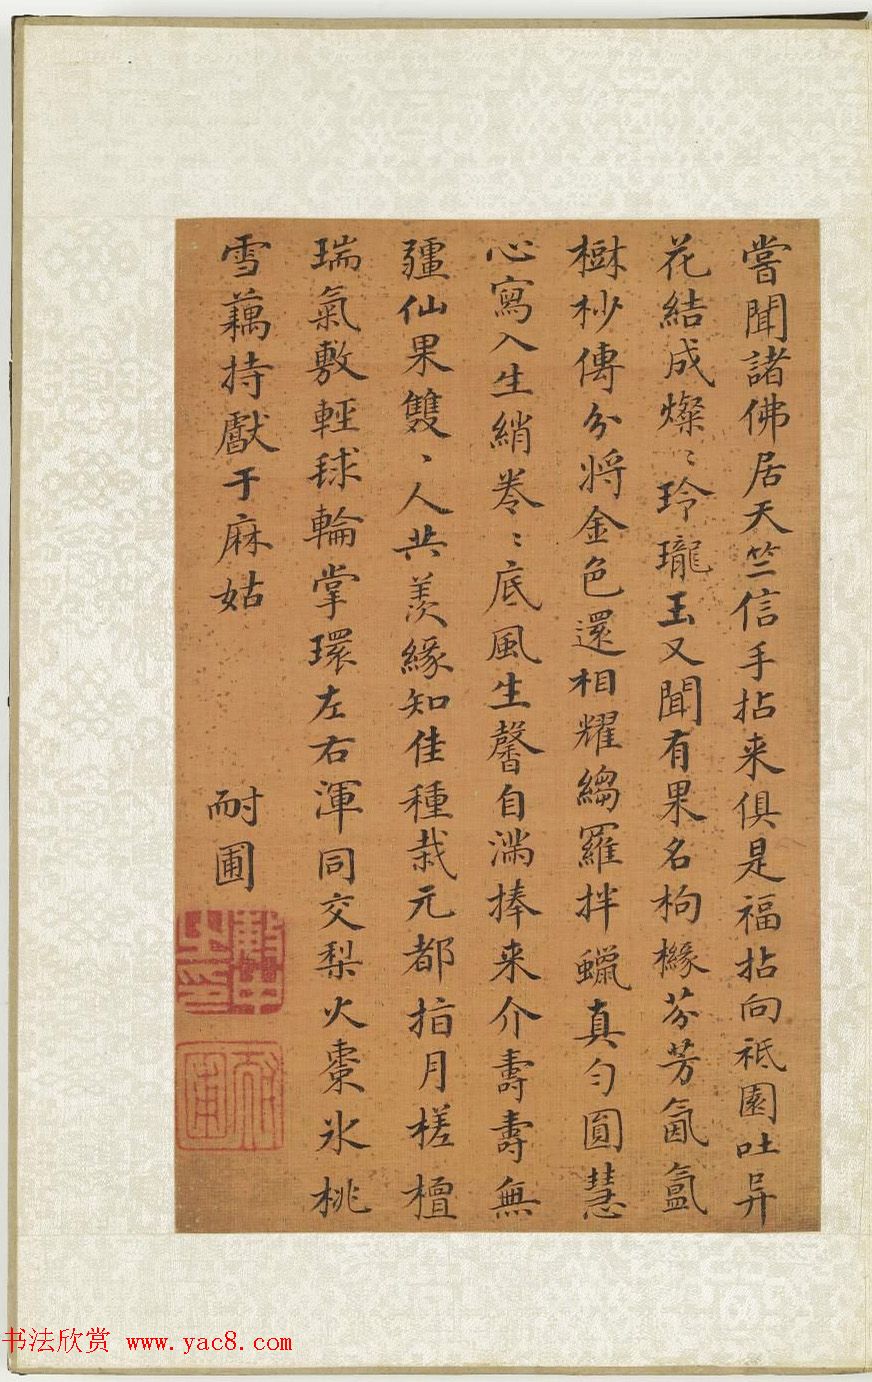 嘗聞諸佛居天竺信手拈来俱是福拈向祗園吐异
花結成燦〻玲瓏玉又聞有果名枸櫞芬芳氤氳
樹杪傳分將金色還相耀縐羅拌蠟真勻圓慧
心寫入生綃卷〻底風生馨自滿捧来介壽壽無
疆仙果雙〻人共羨緣知佳種栽元都指月槎檀
瑞氣敷輕毬輪掌環左右渾同交梨火棗氷桃
雪藕持獻于麻姑
耐圃
耐圃
书法欣赏 www.yac8.com